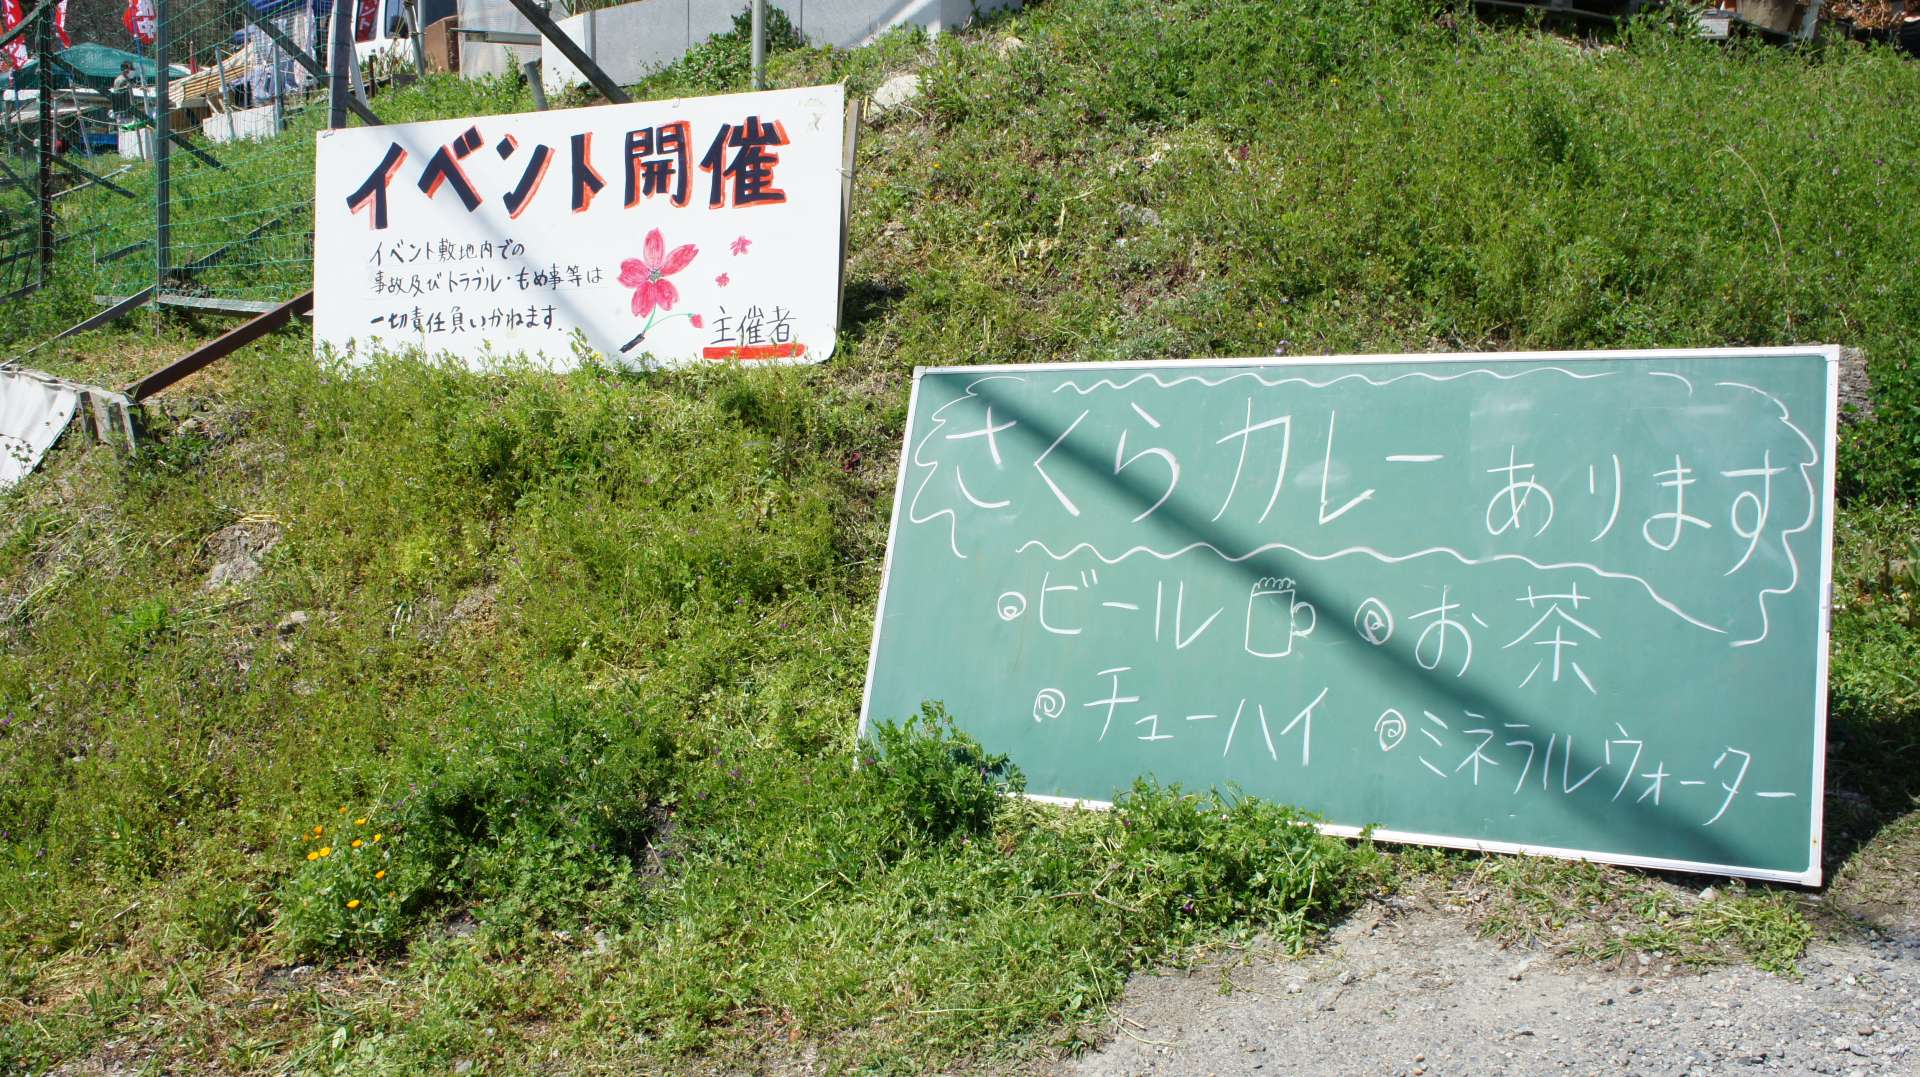 イベント開催
イベント敷地内での
事故及びトラブル・もめ事等は
一切責任負いかねます.
主催者
さくらカレー あります
ビール
お茶
チューハイ
ミネラルウォーター